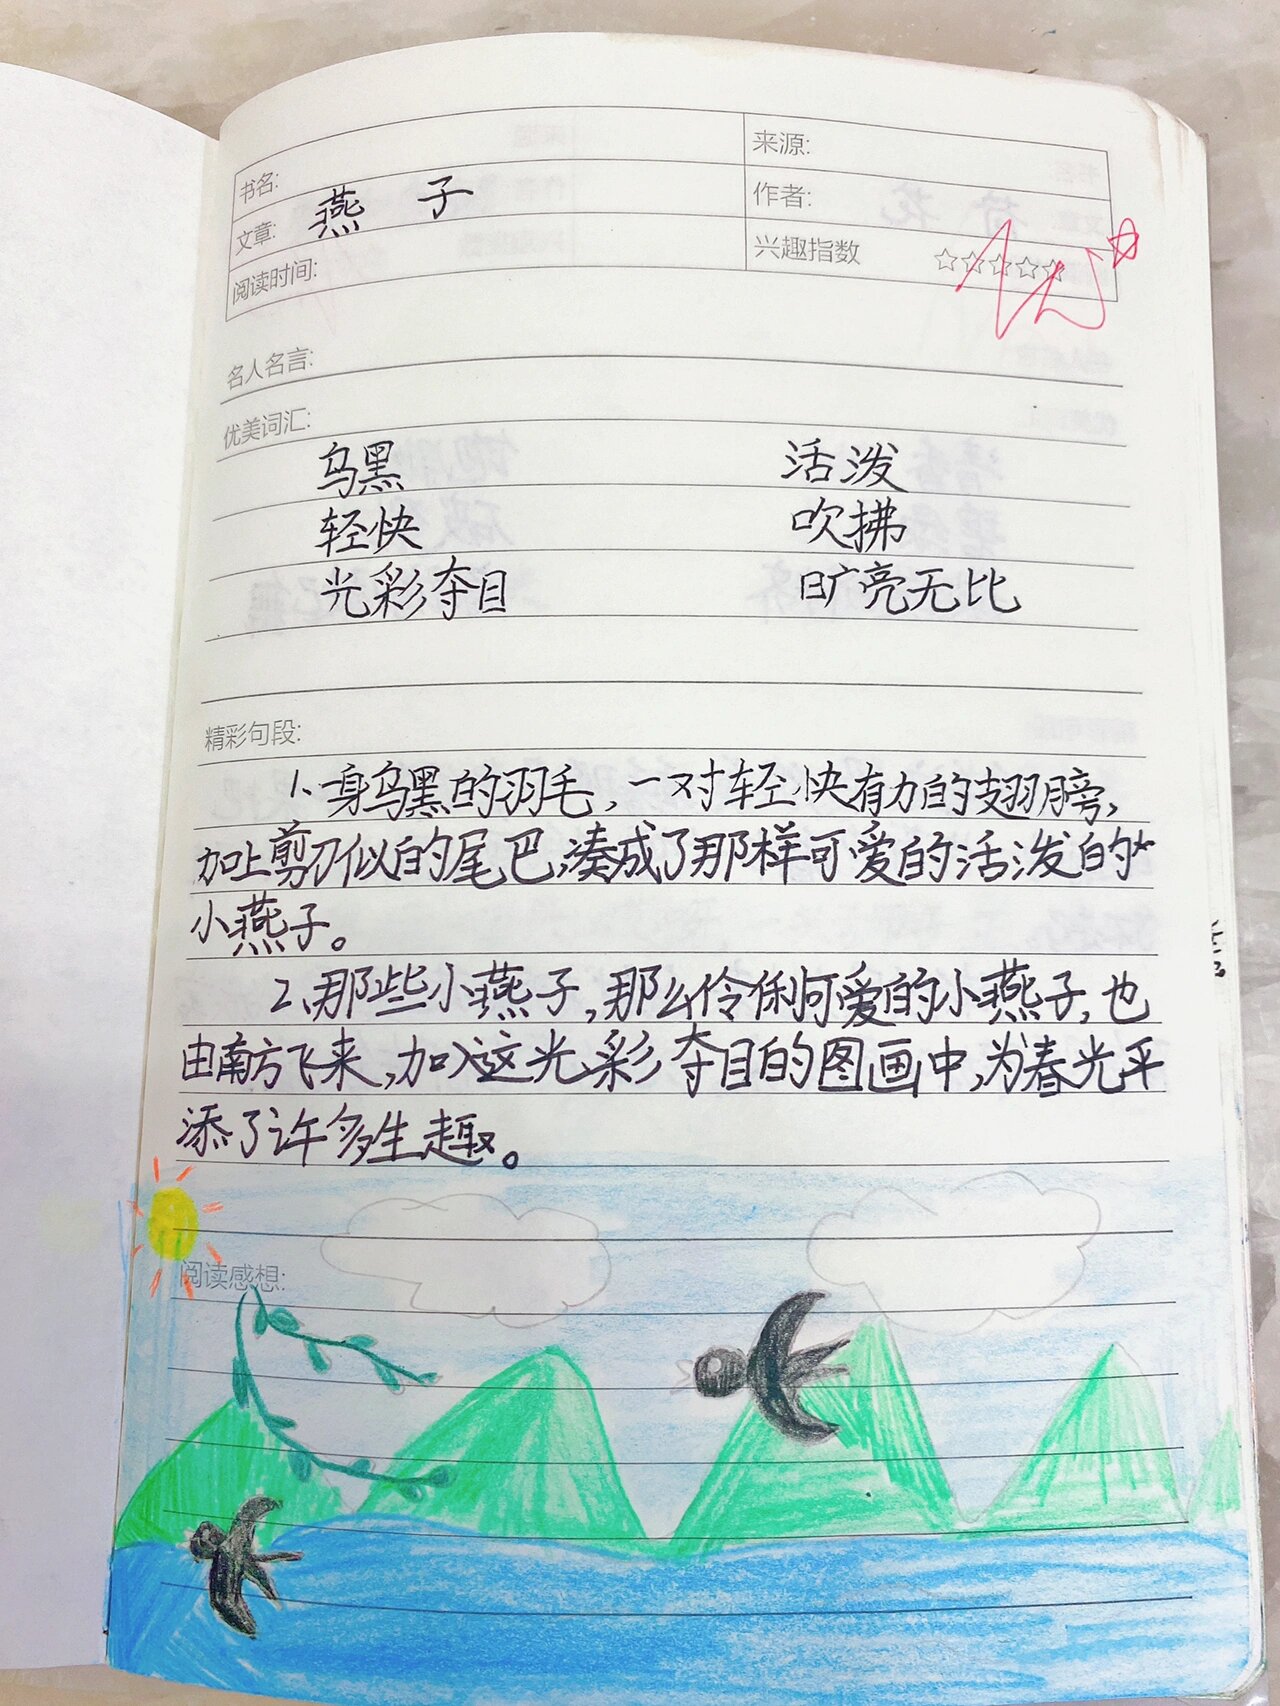 书名:
来源:
文章: 燕子
作者:
阅读时间:
兴趣指数 ☆☆☆☆☆
优☆
名人名言:
优美词汇:
乌黑 活泼
轻快 吹拂
光彩夺目 旷亮无比
精彩句段:
1、一身乌黑的羽毛,一对轻快有力的翅膀,
加上剪刀似的尾巴,凑成了那样可爱的活泼的
小燕子。
2、那些小燕子,那么伶俐可爱的小燕子,也
由南方飞来,加入这光彩夺目的图画中,为春光平
添了许多生趣。
阅读感想: